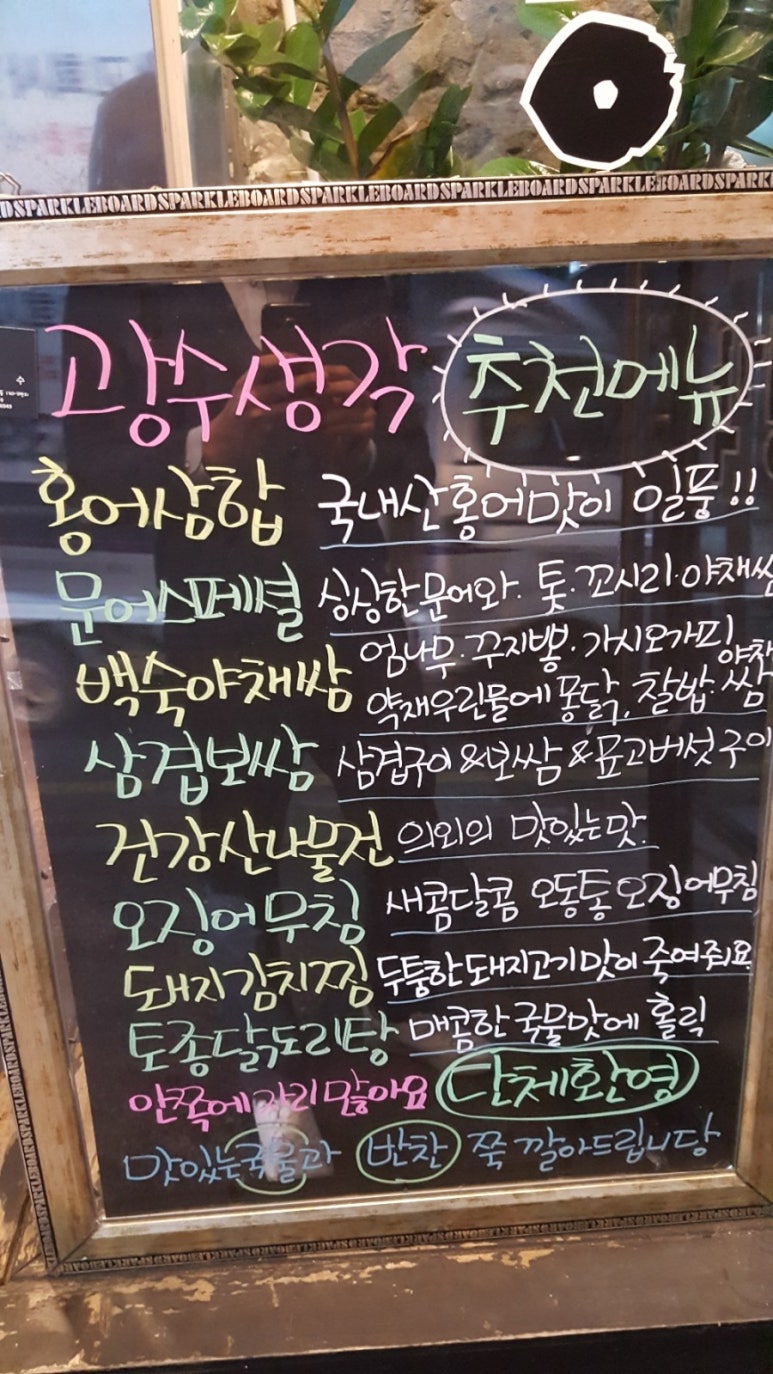 DSPARKLEBOARDSPARKLEBOARDSPARKLEBOARDSPARKLEBOARDSPARKLEBOARDSPARK
광수생각 추천메뉴
홍어삼합 국내산홍어맛이 일품!!
문어스페셜 싱싱한문어와. 톳.꼬시리.야채쌈
백숙야채쌈 엄나무.꾸지뽕.가시오가피
약재우린물에 퐁닭, 찰밥. 야채쌈
삼겹보쌈 삼겹구이&보쌈&표고버섯구이
건강산나물전 의외의 맛있는맛.
오징어무침 새콤달콤 오동통오징어무침
돼지김치찜 두툼한돼지고기맛이 죽여줘요
토종닭도리탕 매콤한국물맛에 홀릭
안쪽에자리많아요 단체환영
맛있는국물과 반찬 쭉 깔아드립니당